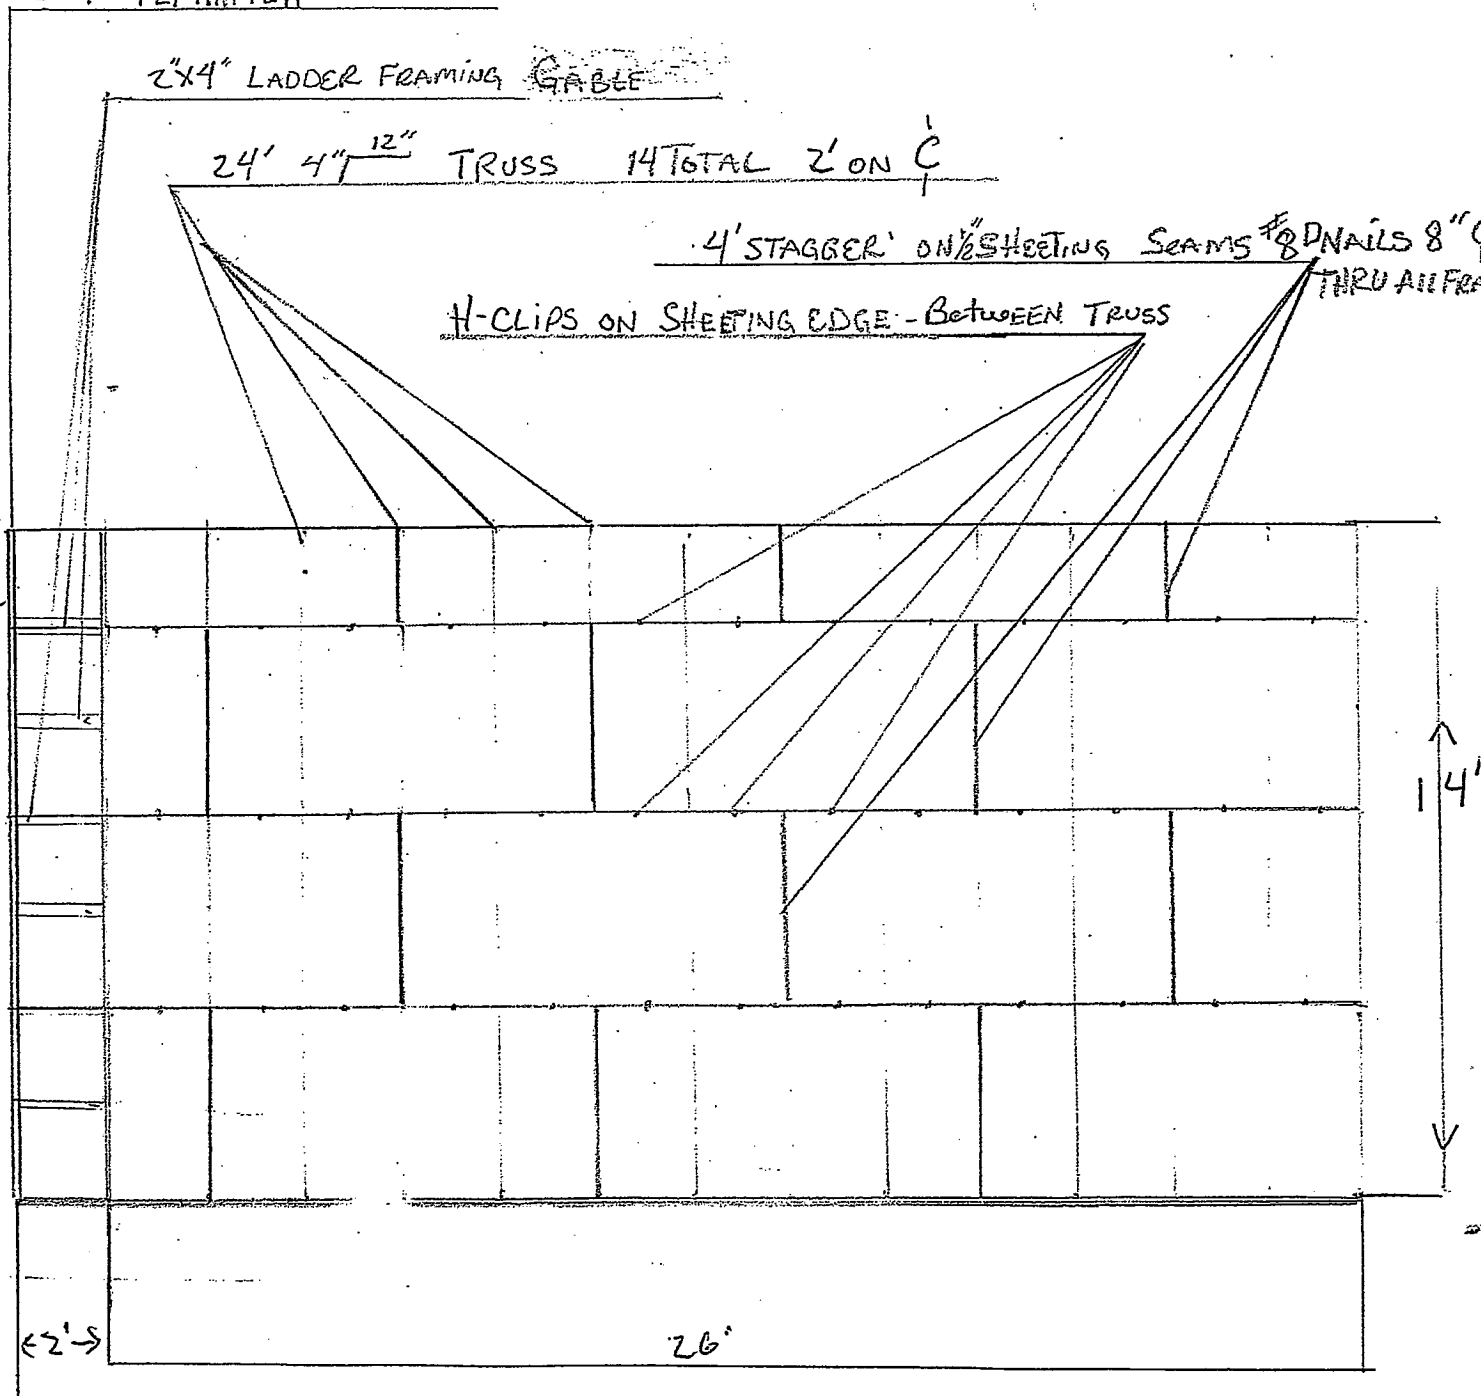 2"X4" LADDER FRAMING GABLE
24' 4" 12" TRUSS 14 TOTAL 2' ON ℄
4' STAGGER ON ½" SHEETING SEAMS #8D NAILS 8" ℄
THRU All FRA
H-CLIPS ON SHEETING EDGE - BETWEEN TRUSS
14'
2'
26'